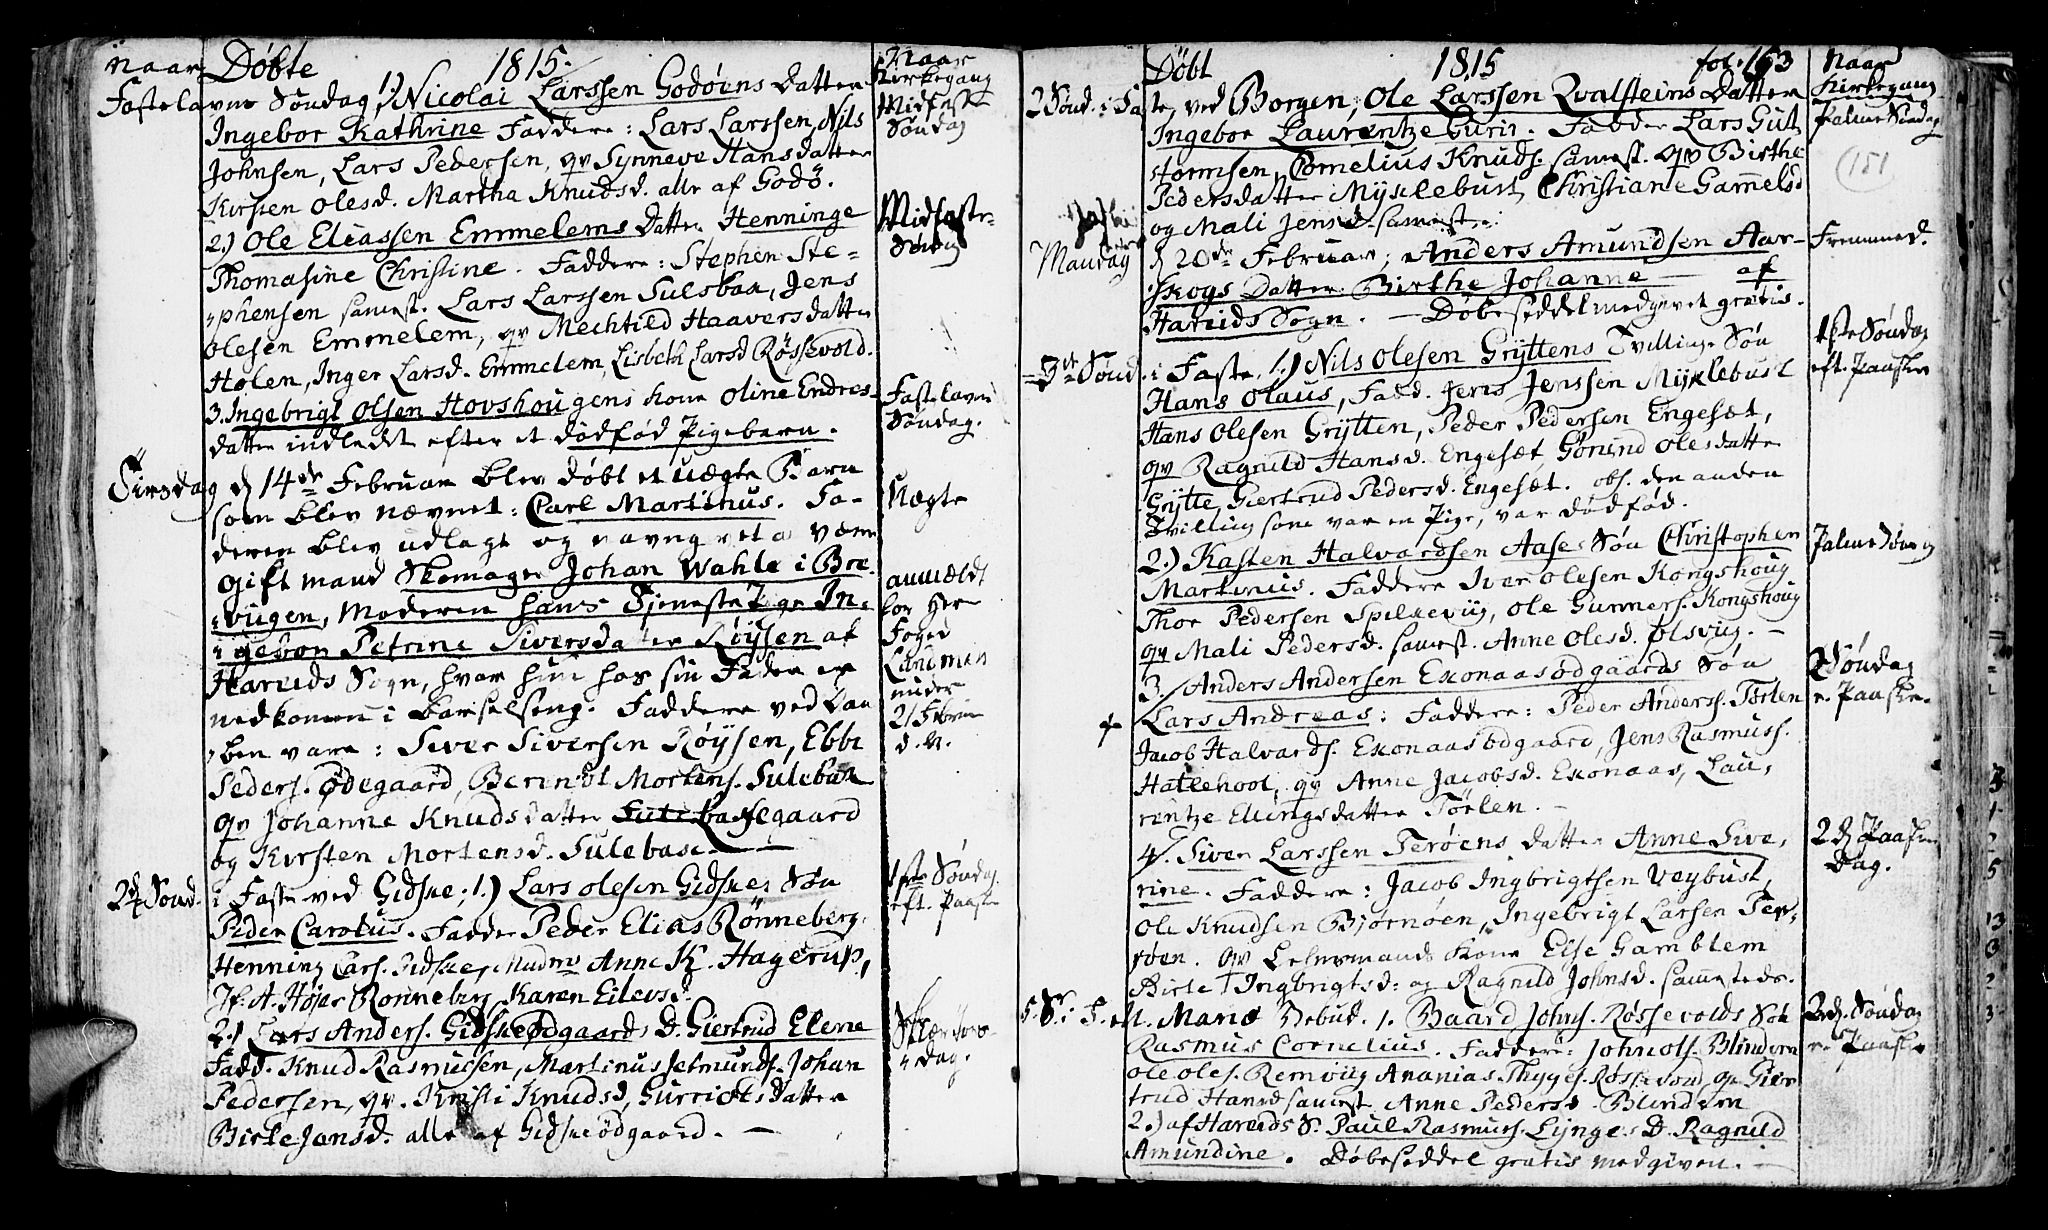 Naar Døbte 1815. Naar Kirkegang
Fastelavns Søndag 1.) Nicolai Larssen Godøens Datter
Ingebor Kathrine Faddere: Lars Larssen, Nils
Johnsen, Lars Pedersen, qv Synneve Hansdatter
Kirsten Olesd. Martha Knudsd. alle af Godø.
Midfaste Søndag
2.) Ole Eliassen Emmelems Datter Henninge
Thomasine Christine. Faddere: Stephen Ste-
phensen samest. Lars Larssen Sulebak, Jens
Olesen Emmelem, qv Mechtild Haaversdatter
Holen, Inger Larsd. Emmelem, Lisbeth Larsd Røssevold.
Midfaste Søndag
3. Ingebrigt Olsen Hovshougens kone Oline Endres-
datter indledt efter et dødfød Pigebarn.
Fastelavns Søndag.
Tirsdag d 14de Februar blev døbt et uægte Barn
som blev nævnet: Carl Martinus. Fa-
deren blev udlagt og navngivet at være
gift mand Skomager Johan Wahle i Bre-
vigen, Moderen hans Tjeneste Pige In-
gebor Petrine Siversdatter Røysen af
Harrids Sogn, hvor hun hos sin Fader er
nedkomen i Barselseng. Faddere ved Daa
ben vare: Siver Siversen Røysen, Ebbe
Peders. Ødegaard, Berendt Mortens. Sulebak
qv Johanne Knudsdatter gaard
og Kirsten Mortensd. Sulebak.
Uægte
anmeldt
for Herr
Foged
Landmark
under
21 Febru
d. A.
2d Sønd. i Faste ved Gidske; 1.) Lars Olesen Gidskes Søn
Peder Carolus. Fadder Peder Elias Rønneberg,
Henning Lars. Gidske, Madme Anne K. Hagerup,
Jf: A. Højer Rønneberg Karen Eilevsd.
1ste Søndag eft. Paaske
2.) Lars Anders. Gidskeødgaards D. Giertrud Elene
Fadd. Knud Rasmussen, Martinus Jetmunds. Johan
Pedersen, qv. Kristi Knudsd, Gurri Olsdatter
Birte Jonsd. alle af Gidskeødgaard.
Skær Tors-
dag.
Døbt 1815 fol. 163 Naar Kirkegang
151
2 Sønd. i Faste, ved Borgen; Ole Larssen Qvalsteins Datter
Ingebor Laurentze Gurir. Fadder Lars Gut
tormsen, Cornelius Knuds samest. qv Birthe
Pedersdatter Myklebust, Christiane Gammelsd
og Mali Jensd. samest.
Palme Søndag
Mandag d 20de Februar; Anders Amundsen Aar-
skogs Datter Birthe Johanne — af
Harrids Sogn. — Døbeseddel medgivet gratis.
Fremmed.
3de Sønd. i Faste, 1.) Nils Olesen Gryttens Tvilling Søn
Hans Olaus, Fadd. Jens Jenssen Myklebust
Hans Olesen Grytten, Peder Pedersen Engesæt,
qv Ragnild Hansd. Engesæt Gorind Olesdatter
Grytte, Giertrud Pedersd. Engesæt. obs. den anden
Tvilling som var en Pige, var dødfød.
1ste Søndag eft. Paaske
2.) Kasten Halvardsen Aases Søn Christopher
Martinus. Faddere Iver Olesen Kongshoug
Thor Pedersen Spilkeviig, Ole Gunners. Kongshoug
qv Mali Pedersd. samest. Anne Olesd. Olsvig.
Palme Søndag
3. Anders Andersen Exonaasødgaards Søn
Lars Andreas: Faddere: Peder Anderss. Tørlen
Jacob Halvards. Exonaasødgaard, Jens Rasmuss.
Hatlehool, qv Anne Jacobsd. Exonaas, Lau-
rentze Ellingsdatter Tørlen.
2 Søndag e. Paaske.
4. Siver Larssen Terøens datter Anne Sive-
rine. Faddere: Jacob Ingbrigtsen Veybust,
Ole Knudsen Bjørnøen, Ingebrigt Larsen Ter-
røen. qv Lehnsmands Kone Else Gamblem
Birte Ingbrigtsd: og Ragnild Johnsd. sammesteds.
2 d Paaske Dag.
5. S. i F. M. Mariæ Bebud. 1. Baard Johns. Røssevolds Søn
Rasmus Cornelius. Faddere: John Ols. Blindem
Ole Oles. Remviig Ananias Thyges. Røssevold, qv Gier
trud Hansd samest Anne Pedersd. Blindem
2d. Søndag e. Paaske
2.) af Harreids S. Paul Rasmuss. Lynges D. Ragnild
Amundine. Døbeseddel gratis medgiven.